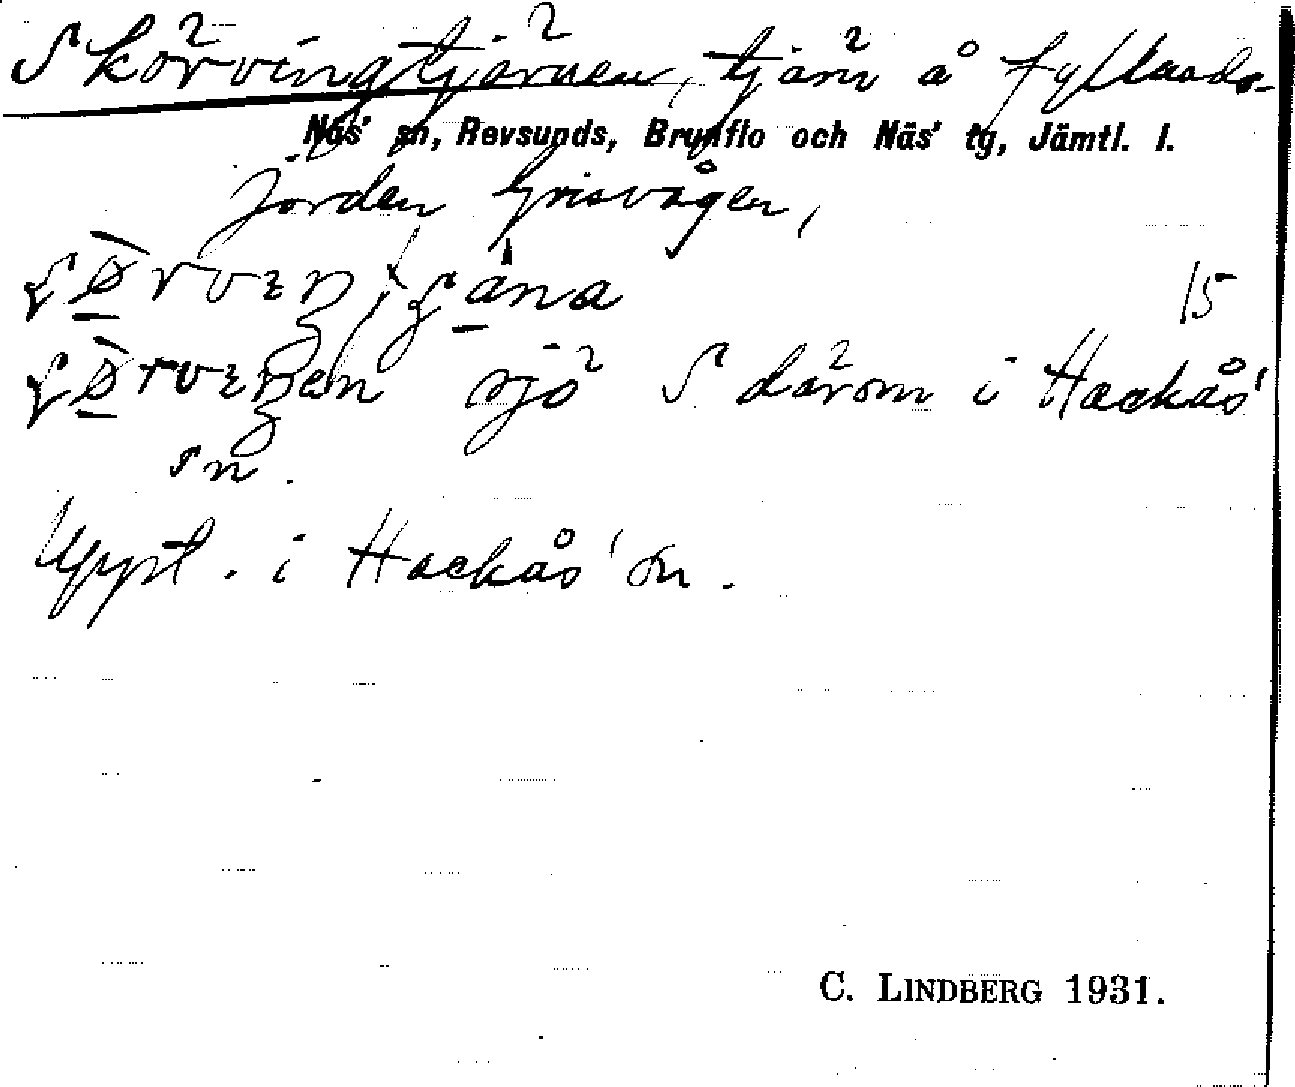 Skörvingtjärnen, tjärn å fyllnads-
Näs' sn, Revsunds, Brunflo och Näs' tg, Jämtl. l.
jorden Grisvågen,
15
sjö S därom i Hackås'
sn.
Uppt. i Hackås' sn.
C. LINDBERG 1931.